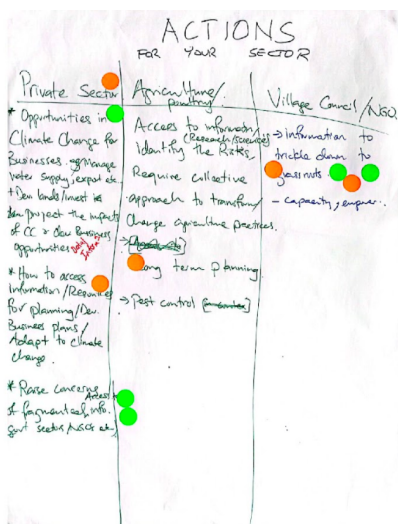 ACTIONS
FOR YOUR SECTOR
Private Sector
* Opportunities in
Climate Change for
Businesses. eg Manage
water supply, export etc
project the impacts
of CC & dev Business
opportunities
* How to access
Information/Resources
for planning/Dev.
Business plans/
Adapt to climate
change.
* Raise concerns
Access to
of fragmented info.
govt sector/NGOs etc
Agriculture/
Access to information/
(Research/sciences)
Identify the Risks
Require collective
approach to transform/
Change agriculture practices.
Long term planning.
→ Pest control
Village Council/NGO
→ information to
trickle down to
- capacity, empower.